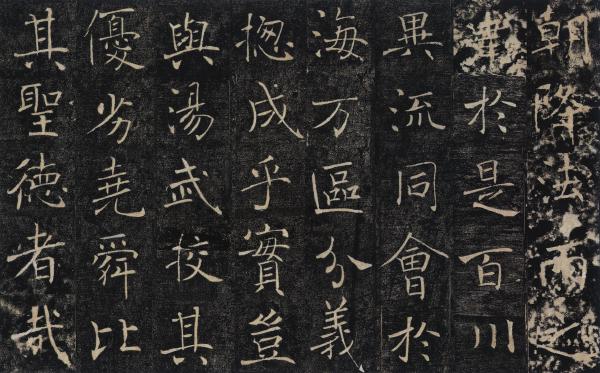 朝降法雨之
澤於是百川
異流同會於
海万區分義
揔成乎實豈
與湯武校其
優劣堯舜比
其聖德者哉